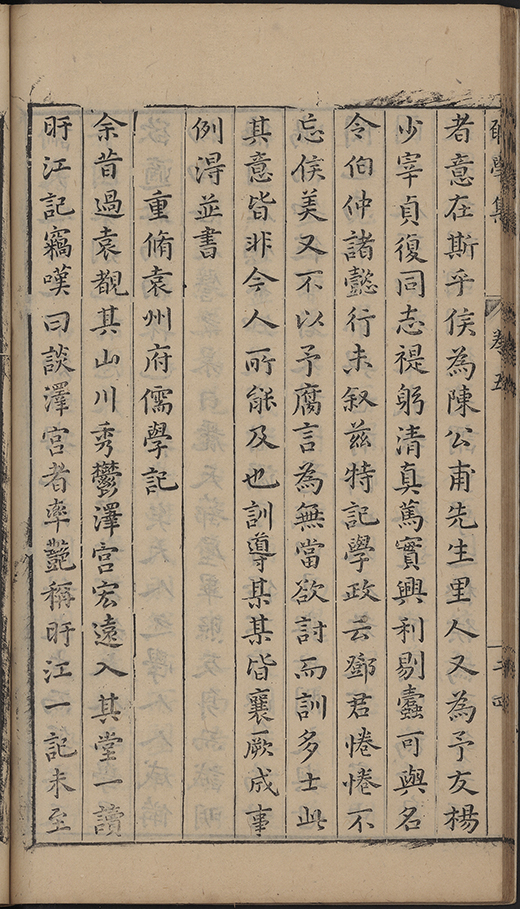 學集 卷五 二四
者意在斯乎侯為陳公甫先生里人又為予友楊
少宰貞復同志禔躬清真篤實興利剔蠹可與名
令伯仲諸懿行未叙兹特記學政云鄧君惓惓不
忘侯美又不以予腐言為無當欲討而訓多士此
其意皆非今人所能及也訓導某某皆襄厥成事
例得並書
重脩袁州府儒學記
余昔過袁覩其山川秀鬱澤宮宏遠入其堂一讀
旴江記竊嘆曰談澤宮者率艷稱旴江一記未至